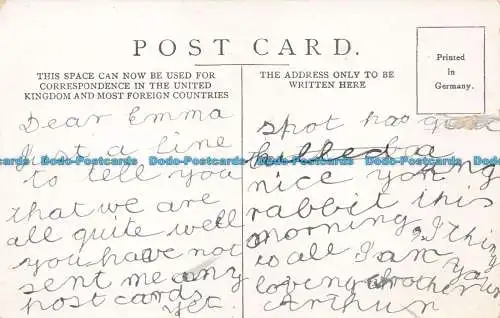 POST CARD.
THIS SPACE CAN NOW BE USED FOR
CORRESPONDENCE IN THE UNITED
KINGDOM AND MOST FOREIGN COUNTRIES
THE ADDRESS ONLY TO BE
WRITTEN HERE
Printed
in
Germany.
Dear Emma
Just a line
to tell you
that we are
all quite well
you have not
sent me any
post cards
yet
Spot has
killed a
nice young
rabbit this
morning I think
is all I am
loving brother
Arthur
Dodo-Postcards Dodo-Postcards Dodo-Postcards
Dodo-Postcards Dodo-Postcards Dodo-Postcards